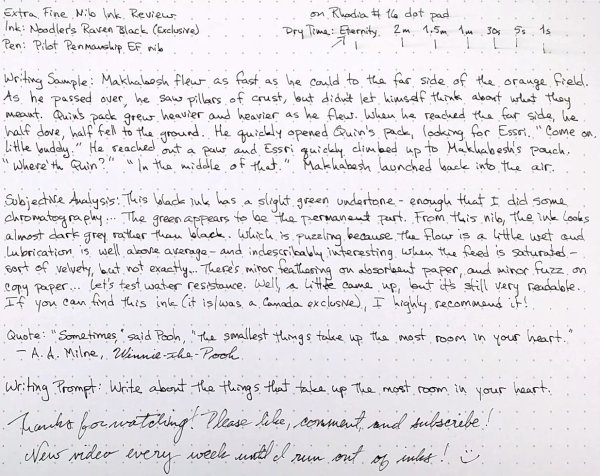 Extra Fine Nib Ink Review
on Rhodia #16 dot pad
Ink: Noodler's Raven Black (Exclusive)
Dry Time: Eternity 2m 1.5m 1m 30s 5s 1s
Pen: Pilot Penmanship EF nib
Writing Sample: Makhabesh flew as fast as he could to the far side of the orange field.
As he passed over, he saw pillars of crust, but didn't let himself think about what they
meant. Quin's pack grew heavier and heavier as he flew. When he reached the far side, he
half dove, half fell to the ground. He quickly opened Quin's pack, looking for Essri. "Come on,
little buddy." He reached out a paw and Essri quickly climbed up to Makhabesh's pouch.
"Where'th Quin?" "In the middle of that." Makhabesh launched back into the air.
Subjective Analysis: This black ink has a slight green undertone - enough that I did some
chromatography... The green appears to be the permanent part. From this nib, the ink looks
almost dark grey rather than black. Which is puzzling because the flow is a little wet and
lubrication is well above average - and indescribably interesting when the feed is saturated -
sort of velvety, but not exactly... There's minor feathering on absorbent paper, and minor fuzz on
copy paper... Let's test water resistance. Well, a little came up, but it's still very readable.
If you can find this ink (it is/was a Canada exclusive), I highly recommend it!
Quote: "Sometimes," said Pooh, "The smallest things take up the most room in your heart."
- A. A. Milne, Winnie-the-Pooh
Writing Prompt: Write about the things that take up the most room in your heart.
Thanks for watching! Please like, comment, and subscribe!
New video every week until I run out of inks!